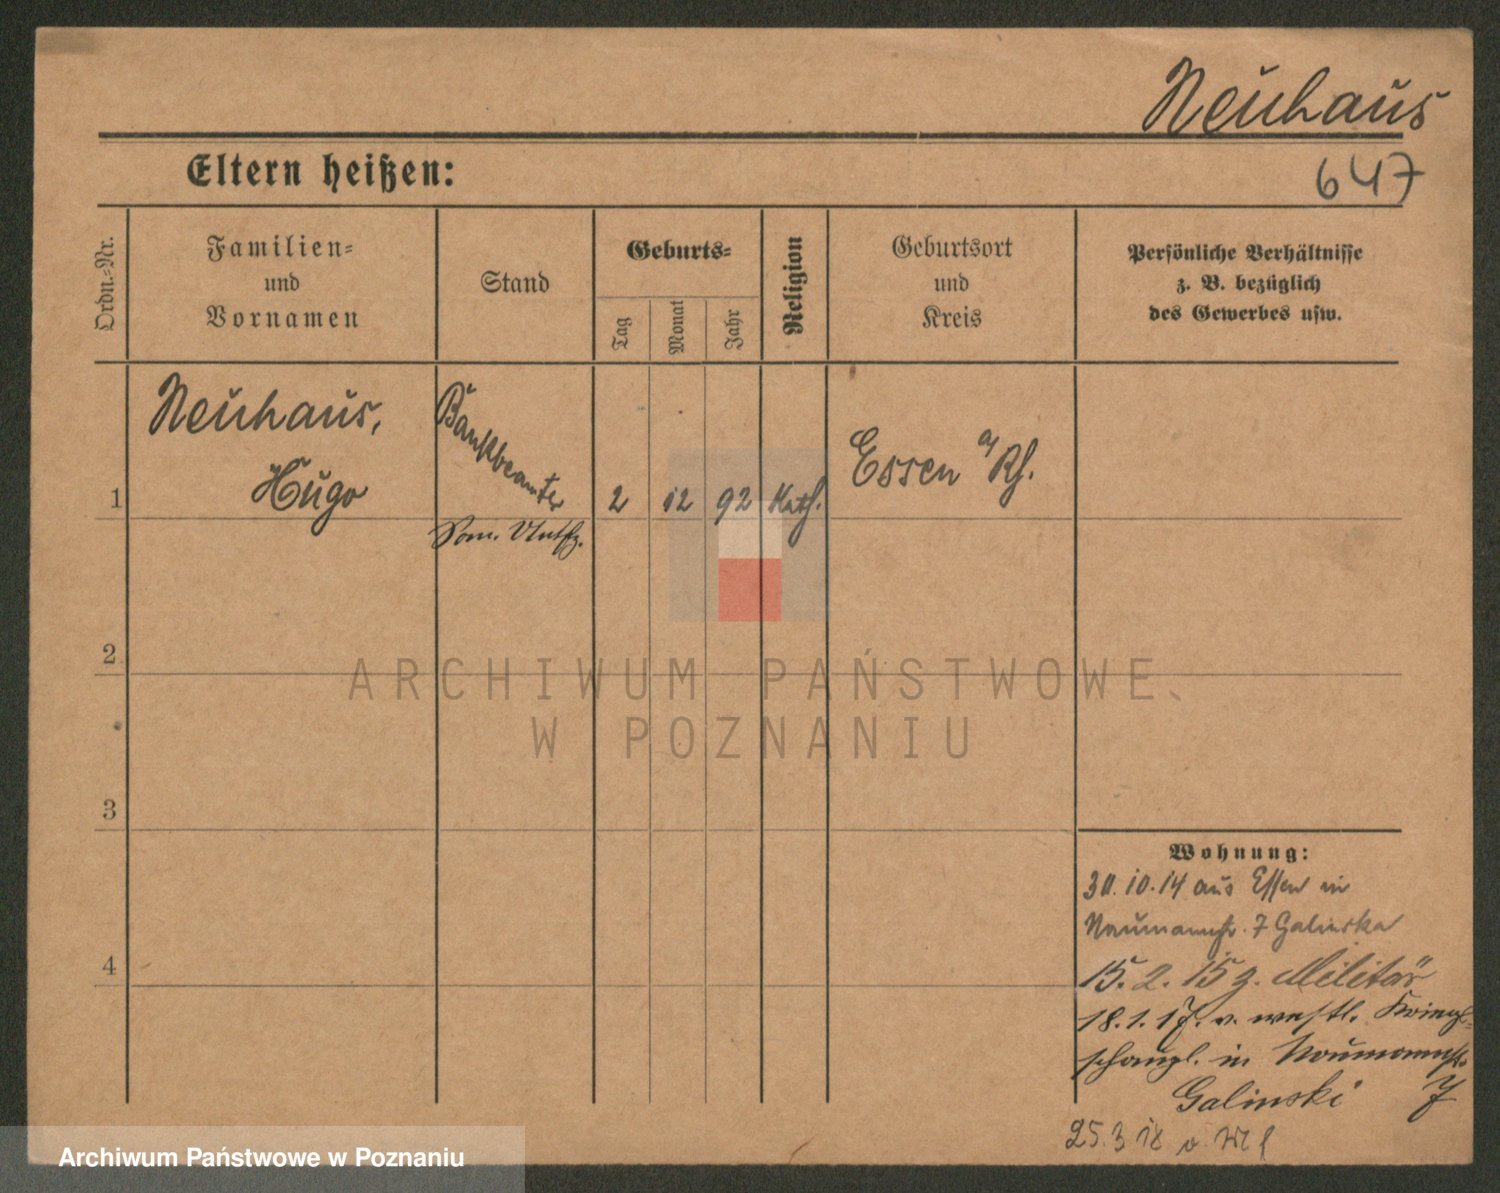 Neuhaus
Eltern heißen:
647
Ordn.=Nr.
Familien=
und
Vornamen
Stand
Geburts=
Tag
Monat
Jahr
Religion
Geburtsort
und
Kreis
Persönliche Verhältnisse
z. B. bezüglich
des Gewerbes usw.
1
Neuhaus,
Hugo
Bankbeamter
2
12
92
Kath.
Essen a/Rh.
2
3
4
Wohnung:
30.10.14 aus Essen in
Naumannstr. 7 Galinska
15. 2. 15 z. Militär
18. 1. 17. v. westl. Kriegs=
schaupl. in Naumannstr.
Galinski 7
25. 3 18
ARCHIWUM PAŃSTWOWE
W POZNANIU
Archiwum Państwowe w Poznaniu